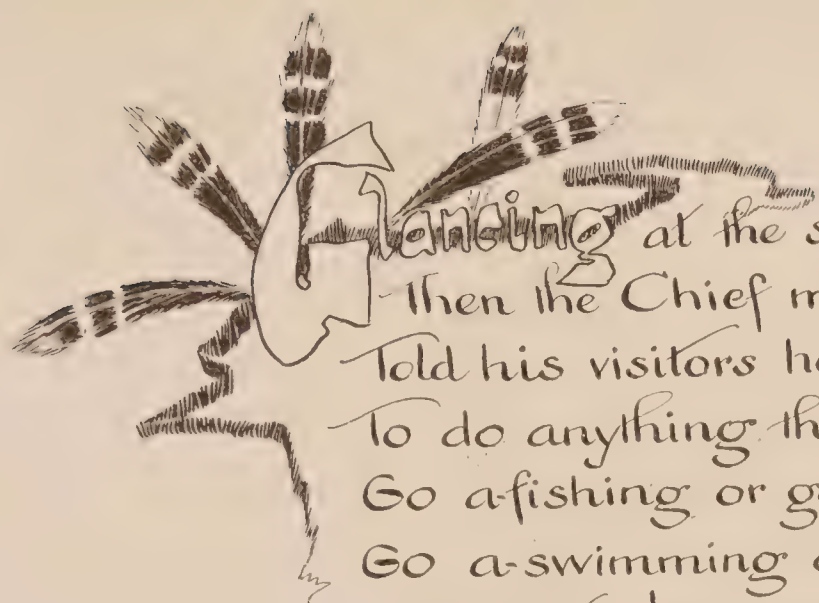 Glancing at the
Then the Chief
Told his visitors
To do anything
Go a-fishing or
Go a-swimming